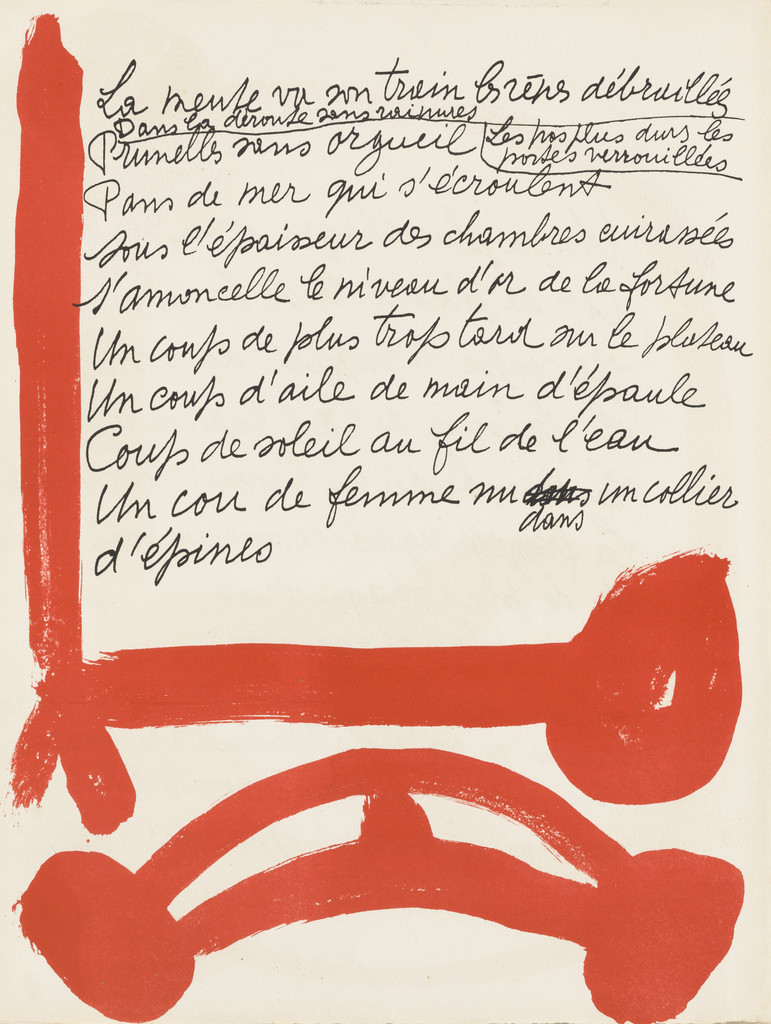 La meute va son train les reins débraillés
Dans la déroute sans rainures
Prunelles sans orgueil
Les pas plus durs les
portes verrouillées
Pans de mer qui s'écroulent
sous l'épaisseur des chambres cuirassées
s'amoncelle le niveau d'or de la fortune
Un coup de plus trop tard sur le plateau
Un coup d'aile de main d'épaule
Coup de soleil au fil de l'eau
Un cou de femme nu un collier
dans
d'épines